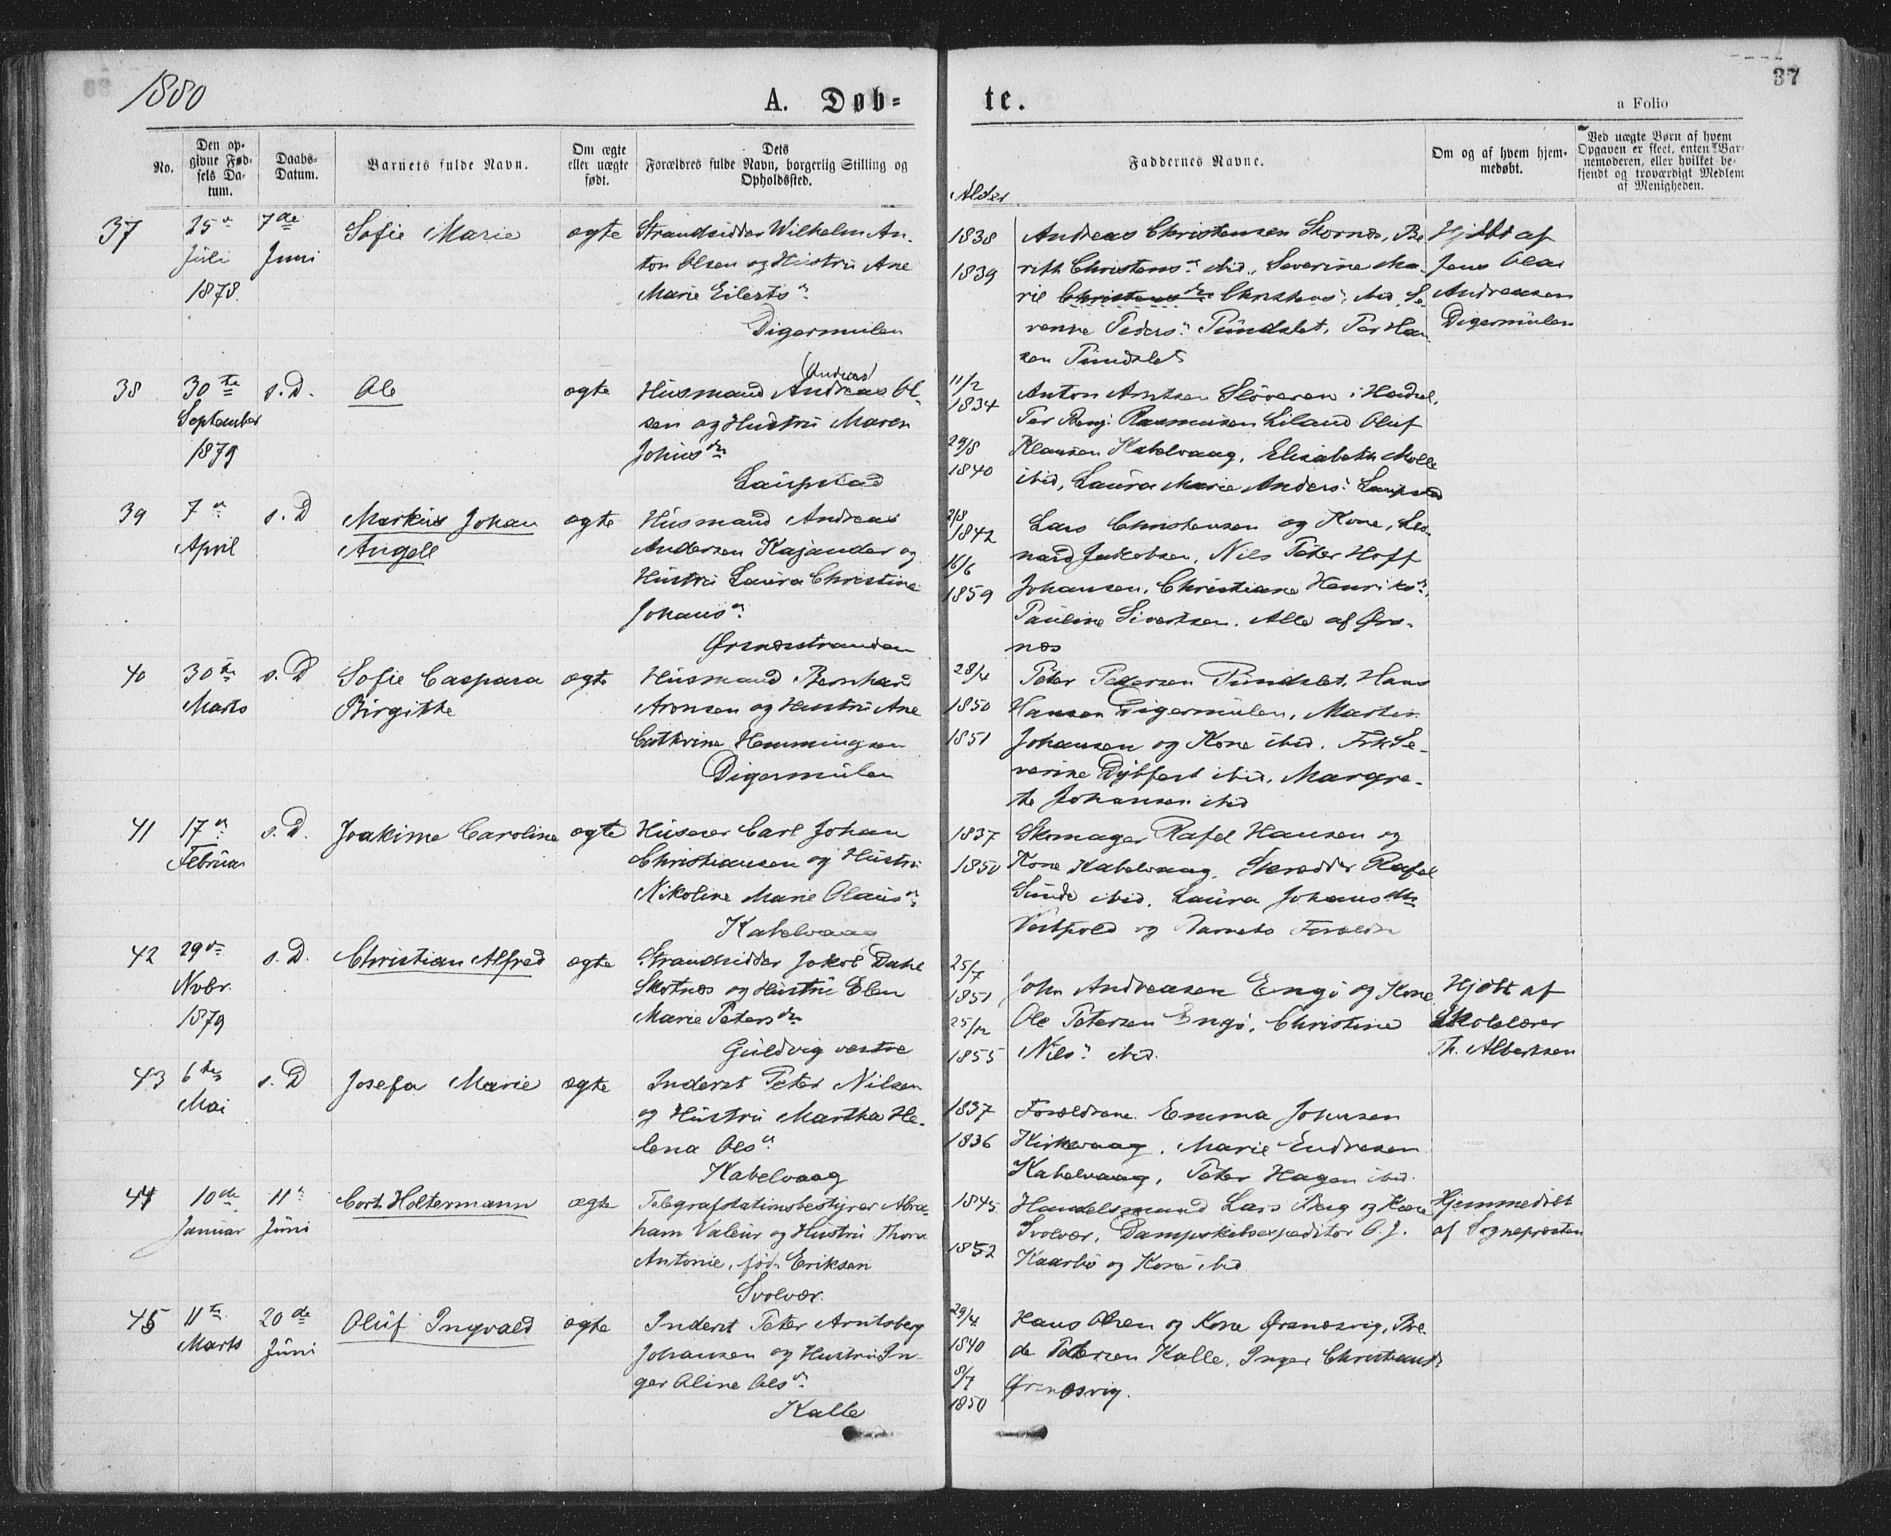 1880
A. Døb=
te.
37
a Folio
No.
Den op-
givne Fød-
sels Da-
tum.
Daabs-
Datum.
Barnets fulde Navn.
Om ægte
eller uægte
født.
Dets
Forældres fulde Navn, borgerlig Stilling og
Opholdssted.
Alder
Faddernes Navne.
Om og af hvem hjem-
medøbt.
Ved uægte Børn af hvem
Opgaven er skeet, enten Bar-
nemoderen, eller hvilket be-
kjendt og troværdigt Medlem
af Menigheden.
37
25de
Juli
1878
7de
Juni
Sofie Marie
ægte
Strandsidder Wilhelm An-
ton Olsen og Hustru Ane
Marie Eilertsn
Digermulen
1838
1839
Andreas Christensen Skornæs, Be
rith Christensn ibid, Severine Ma-
rie Christensdr Christens, ibid, Se
verine Pedersn Pundslet, Per Han
sen Pundslet
Hjdbt af
Jens Olai
Andreasen
Digermulen
38
30te
September
1879
s.D.
Ole
ægte
(Andreas)
Husmand Andreas Ol-
sen og Hustru Maren
Johnsdr
Laupstad
11/2
1834
29/8
1840
Anton Arntsen Sløveren i Hadsel,
Per Benj. Rasmusen Liland Oluf
Klausen Kabelvaag, Elisabeth Molle
ibid, Laura Marie Andersn Laupstad
39
7de
April
s.D
Markus Johan
Angell
ægte
Husmand Andreas
Andersen Kajander og
Hustru Laura Christine
Johansn
Ørsnæsstranden
2/8
1842
16/6
1859
Lars Christensen og Kone, Leo-
nard Jakobsen, Nils Peter Hoff
Johansen, Christiane Henriksn,
Pauline Sivertsen. Alle af Ørs-
næs
40
30te
Marts
s.D
Sofie Caspara
Birgitte
ægte
Husmand Bernhard
Aronsen og Hustru Ane
Cathrine Hemmingsen
Digermulen
28/4
1850
1851
Peter Pedersen Pundslet, Hans
Hansen Digermulen, Martin
Johansen og Kone ibid. Frk Se-
verine Dybfest ibid, Margre-
te Johansen ibid
41
17de
Februar
s.D.
Joakime Caroline
ægte
Huseier Carl Johan
Christiansen og Hustru
Nikoline Marie Olausn
Kabelvaag
1837
1850
Skomager Rafel Hansen og
Kone Kabelvaag, Skrædder Rafel
Sunde ibid, Laura Johansdtr
Vestpold og Barnets Forældre
42
29de
Nvbr.
1879
s.D.
Christian Alfred
ægte
Strandsidder Jakob Dahl
Skotnæs og Hustru Elen
Marie Petersdr
Guldvig vestre
25/7
1851
25/12
1855
John Andreasen Engø og Kone
Ole Petersen Engø, Christine
Nilsn ibid.
Hjdbt af
Skolelærer
Th. Albertsen
43
6te
Mai
s.D
Josefa Marie
ægte
Inderst Peter Nilsen
og Hustru Martha He-
lena Olsn
Kabelvaag
1837
1836
Forældrene. Emma Johnsen
Kirkevaag, Marie Endresen
Kabelvaag, Peter Hagen ibid.
44
10de
Januar
11te
Juni
Cort Holtermann
ægte
Telegrafstationsbestyrer Abra-
ham Valeur og Hustru Thora
Antonie, fød Eriksen
Svolvær.
1845
1852
Handelsmand Lars Berg og Kone
Svolvær, Dampskibsexpeditør O. J.
Kaarbø og Kone ibid
Hjemmedøbt
af Sognepræsten
45
11te
Marts
20de
Juni
Oluf Ingvald
ægte
Inderst Peter Arntsberg
Johansen og Hustru In-
ger Oline Olsn
Kalle
29/4
1840
8/7
1850
Hans Olsen og Kone Ørsnæsvig, Bre-
de Petersen Kalle, Inger Christiansdr
Ørsnæsvig.